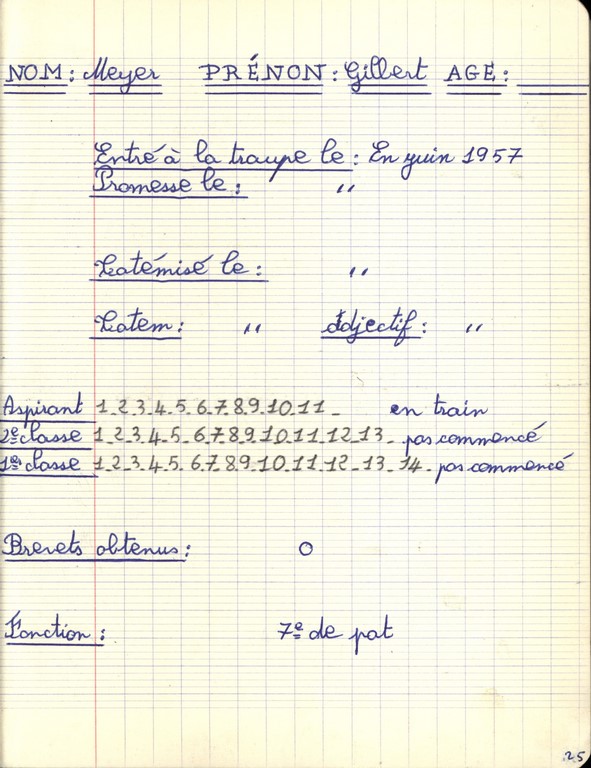 NOM: Meyer PRÉNON: Gilbert AGE:
Entré à la troupe le: En juin 1957
Promesse le: "
Totémisé le: "
Totem: " Adjectif: "
Aspirant 1_2_3_4_5_6_7_8_9_10_11_ en train
2e classe 1_2_3_4_5_6_7_8_9_10_11_12_13_ pas commencé
1re classe 1_2_3_4_5_6_7_8_9_10_11_12_13_14_ pas commencé
Brevets obtenus: 0
Fonction: 7e de pat
25